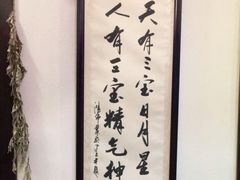 天有三宝日月星
人有三宝精气神